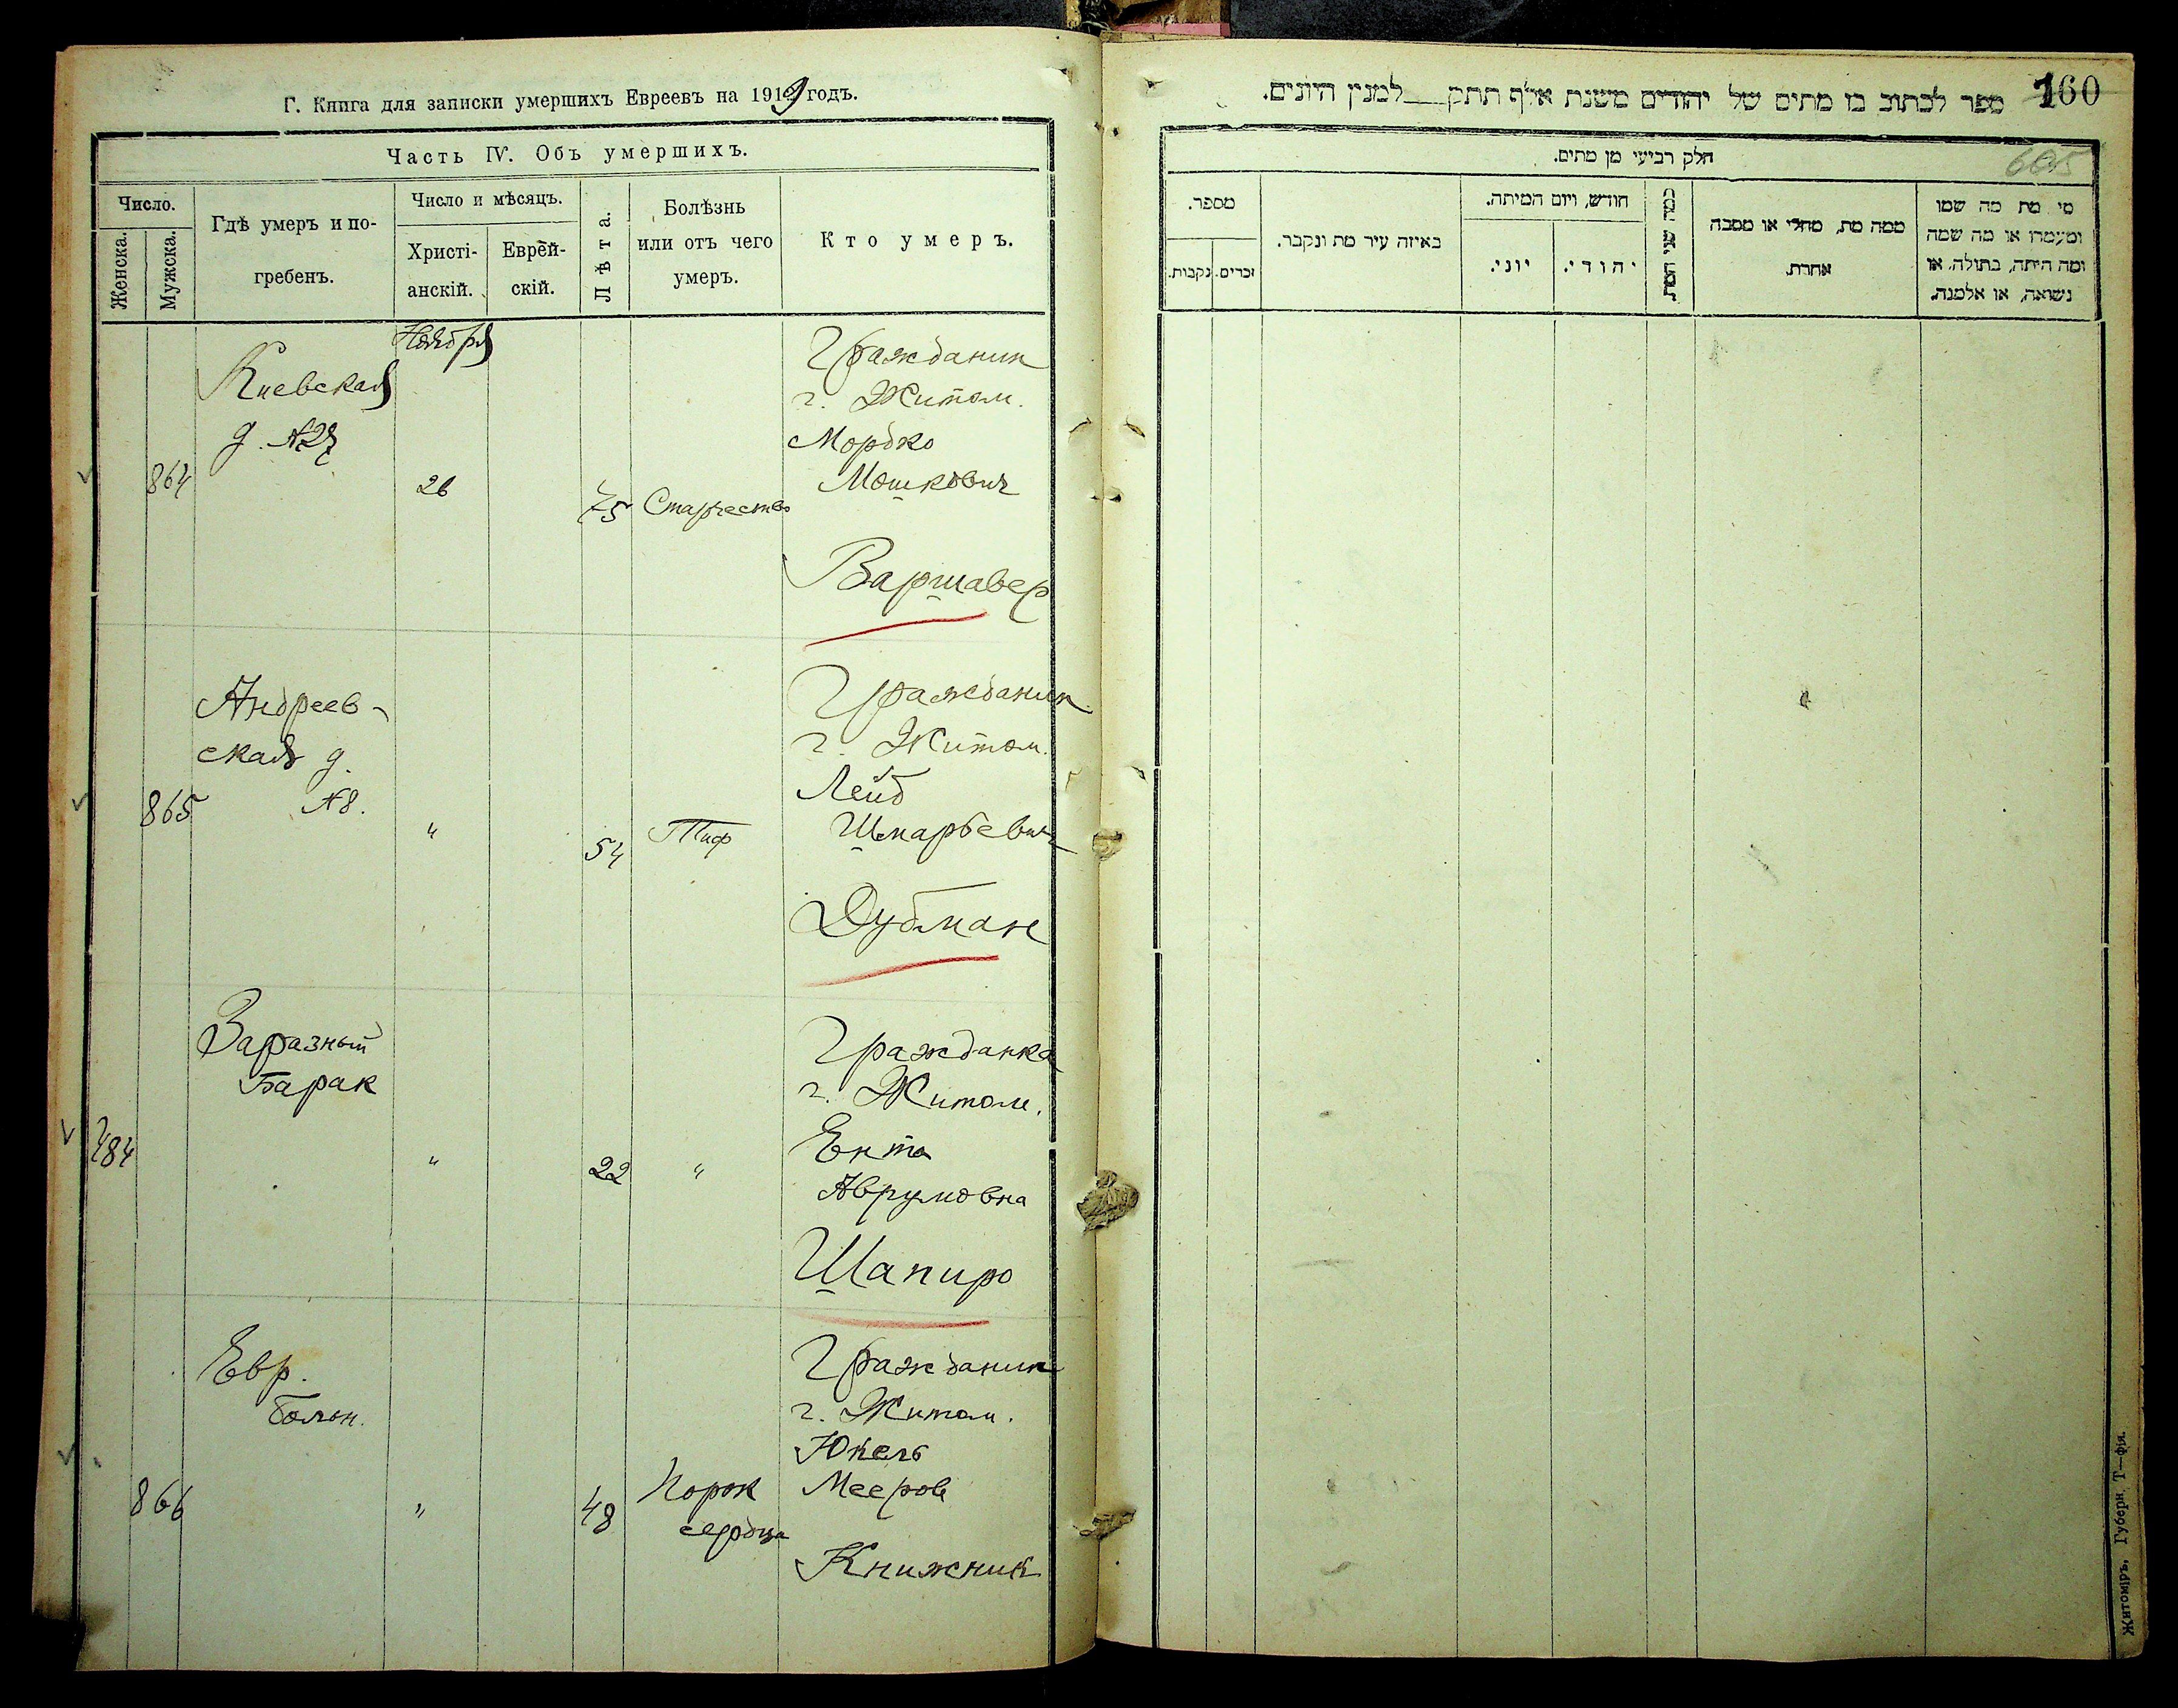 Г. Книга для записки умершихъ Евреевъ на 1919 годъ.
Часть IV. Объ умершихъ.
Число.
Женска.
Мужска.
Гдѣ умеръ и по-
гребенъ.
Число и мѣсяцъ.
Христі-
анскій.
Еврей-
скій.
Лѣта.
Болѣзнь
или отъ чего
умеръ.
Кто умеръ.
Ноября
Киевская
д. №
864
26
75
Старчество
Гражданин
г. Житом.
Мордко
Мошкович
Варшавер
Андреев-
ская д.
№8.
865
"
54
Тиф
Гражданин
г. Житом.
Лейб
Шмарьевич
Дубман
Заразный
Барак
484
"
22
"
Гражданка
г. Житом.
Ента
Аврумовна
Шапиро
Евр.
больн.
866
"
48
Порок
сердца
Гражданин
г. Житом.
Юкель
Мееров
Книжник
160
ספר לכתוב בו מתים של יהודים משנת אלף תתק למנין היונים.
605
חלק רביעי מן מתים.
מספר.
נקבות.
זכרים.
באיזה עיר מת ונקבר.
חודש, ויום המיתה.
יוני.
יהודי.
כמה שני המת.
ממה מת, מחלי או מסבה
אחרת.
מי מת מה שמו
ומעמדו או מה שמה
ומה היתה, בתולה, או
נשואה, או אלמנה.
Житомiръ, Губерн. Т—фія.